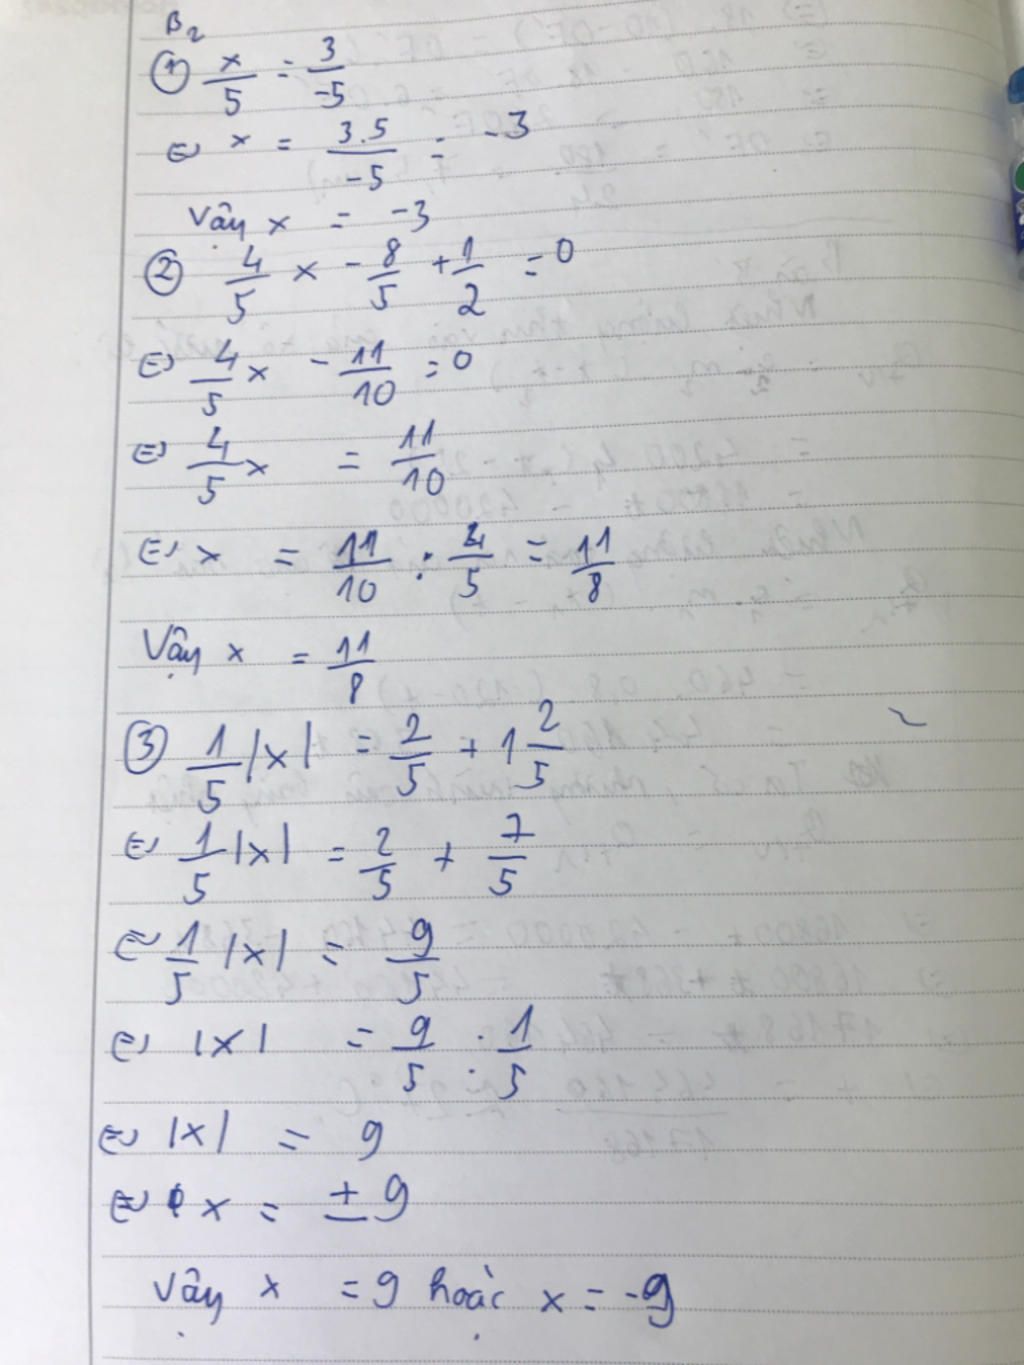 B2
① x/5 = 3/-5
⇔ x = 3.5/-5 = -3
Vậy x = -3
② 4/5 x - 8/5 + 1/2 = 0
⇔ 4/5 x - 11/10 = 0
⇔ 4/5 x = 11/10
⇔ x = 11/10 : 4/5 = 11/8
Vậy x = 11/8
③ 1/5 |x| = 2/5 + 1 2/5
⇔ 1/5 |x| = 2/5 + 7/5
⇔ 1/5 |x| = 9/5
⇔ |x| = 9/5 : 1/5
⇔ |x| = 9
⇔ x = ± 9
Vậy x = 9 hoặc x = -9